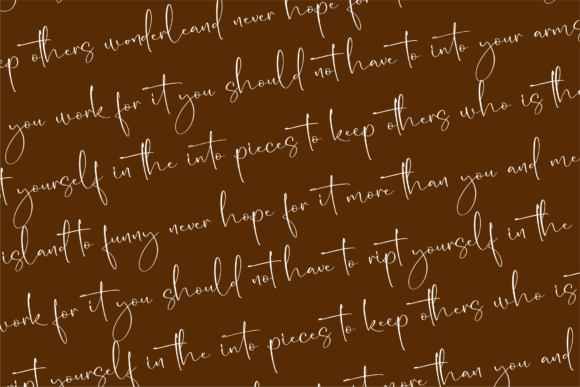 ep others wonderleand never hope for
you work for it you should not have to into your arms
t yourself in the into pieces to keep others who is the
island to funny never hope for it more than you and me
work for it you should not have to ript yourself in the
ript yourself in the into pieces to keep others who is
it more than you and